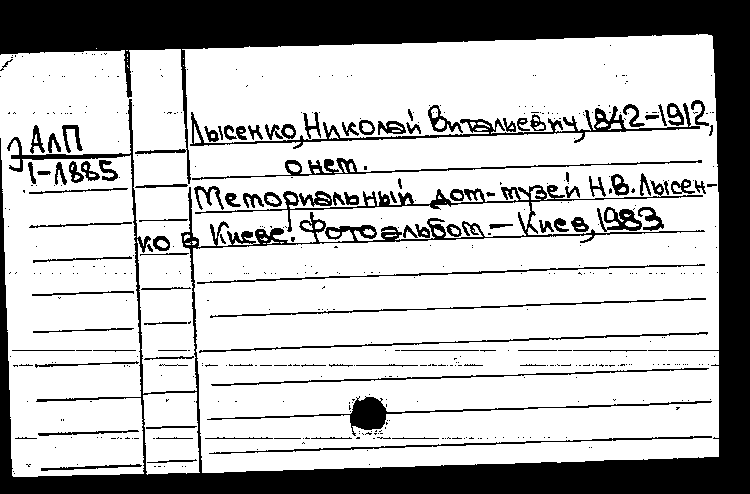 ЭАлП
1-Л885
Лысенко, Николай Витальевич, 1842-1912,
о нем.
Мемориальный дом-музей Н.В. Лысен-
ко в Киеве: Фотоальбом. – Киев, 1983